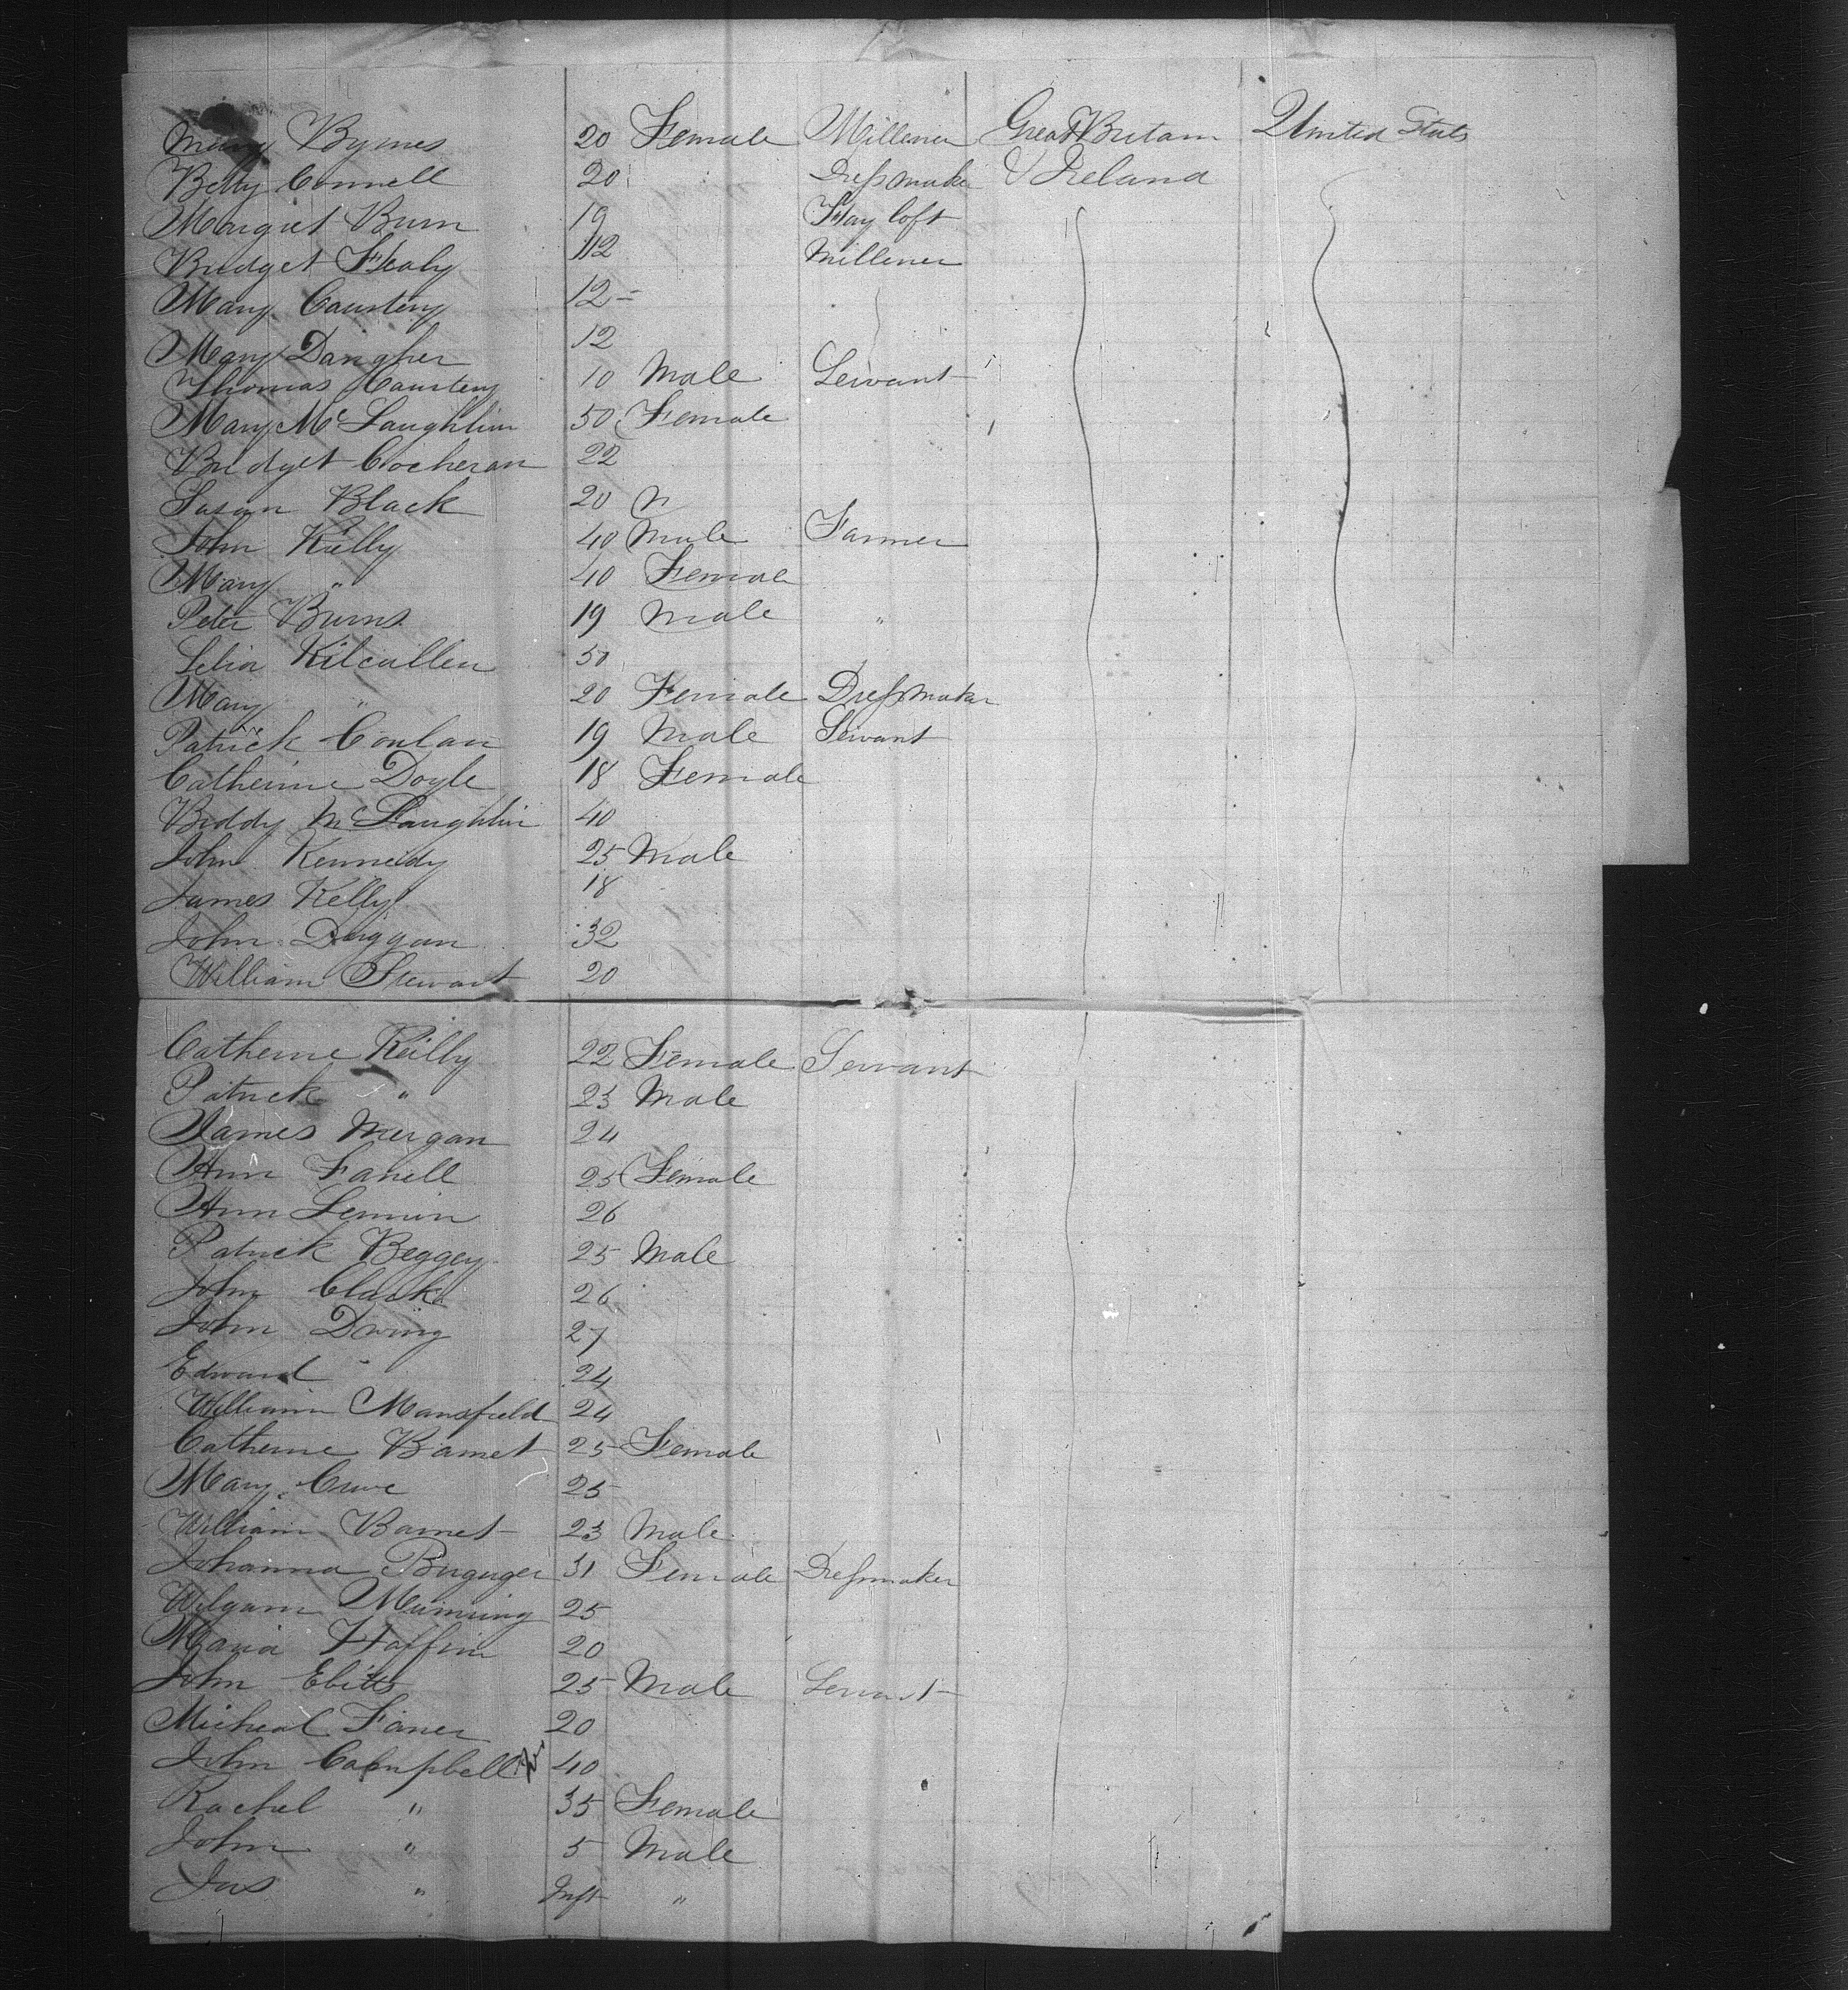 Mary Byrnes 20 Female Millener Great Britain United States
Betty Connell 20 Dressmaker & Ireland
Margret Burn 19 Stay loft
Bridget Healy 12 Millener
Mary Caurteny 12
Mary Dangher 12
Thomas Caurteny 10 Male Servant
Mary McLaughlin 50 Female
Bridget Cocheran 22
Susan Black 20 "
John Rielly 40 Male Farmer
Mary " 40 Female
Peter Burns 19 Male "
Selia Kilcullen 50
Mary " 20 Female Dressmaker
Patrick Conlan 19 Male Servant
Catherine Doyle 18 Female
Biddy McLaughlin 40
John Kennedy 25 Male
James Kelly 18
John Duggan 32
William Stewart 20
Catherine Reilly 22 Female Servant
Patrick " 23 Male
James Morgan 24
Ann Farrell 25 Female
Ann Lennin 26
Patrick Beggey 25 Male
John Clark 26
John Dwing 27
Edward 24
William Mansfield 24
Catherine Barnet 25 Female
Mary Crowe 25
William Barnet 23 Male
Johanna 31 Female Dressmaker
Wilyam Manning 25
Maria Haffin 20
John Ebitts 25 Male Servant
Micheal Faner 20
John Campbell 40
Rachel " 35 Female
John " 5 Male
Jas " Inft "